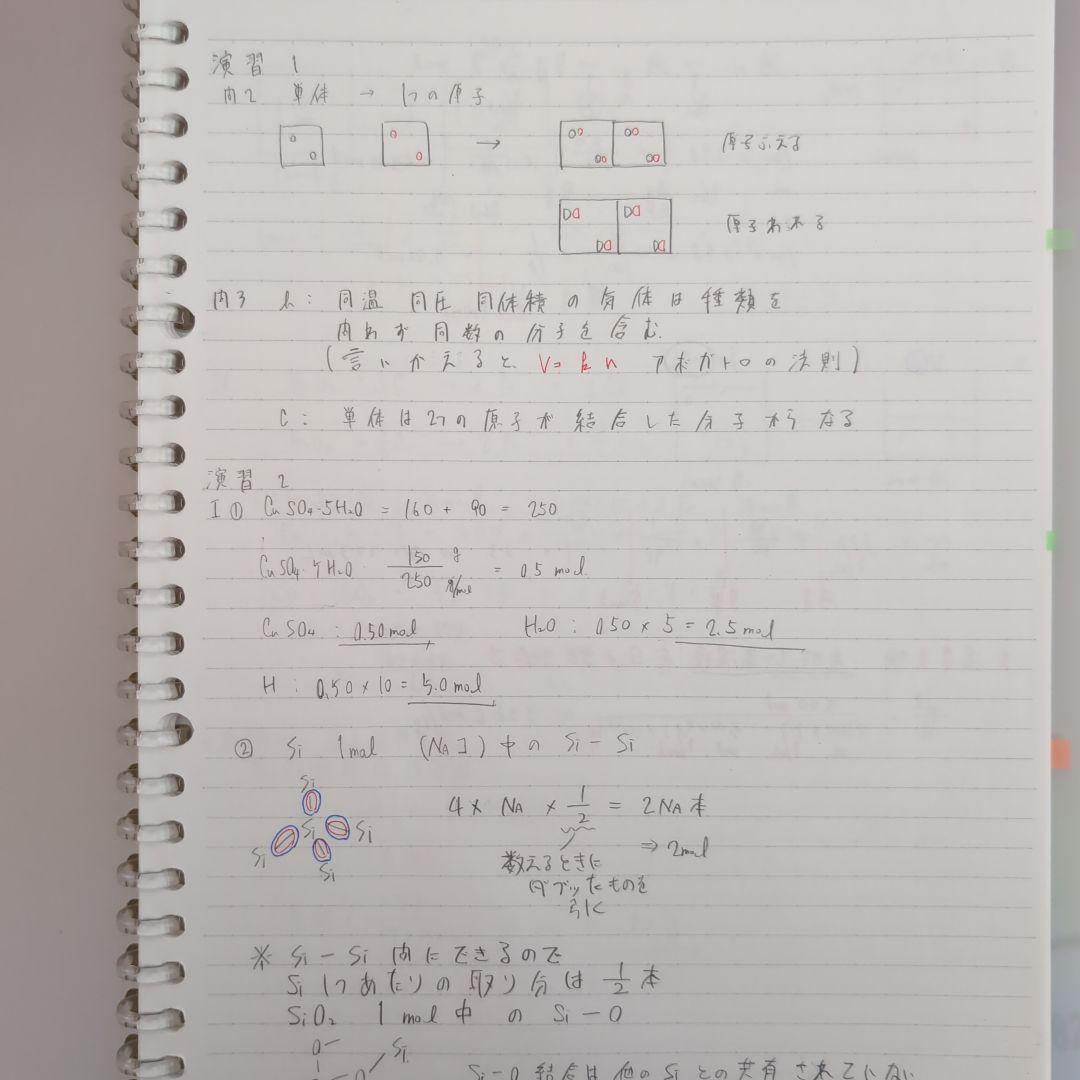 演習 1
内2 単体 → 1つの原子
→ 原子ふえる
原子われる
内3 b: 同温 同圧 同体積の気体は種類を
内わず同数の分子を含む.
(言いかえると、V=kn アボガドロの法則)
C: 単体は2つの原子が結合した分子からなる
演習 2
I ① CuSO4・5H2O = 160 + 90 = 250
CuSO4・5H2O 150 g / 250 g/mol = 0.5 mol
CuSO4 : 0.50mol H2O : 0.50 × 5 = 2.5 mol
H : 0.50 × 10 = 5.0 mol
② Si 1mol (NAコ) 中の Si-Si
Si
Si Si Si
Si
4 × NA × 1/2 = 2NA本
⇒ 2mol
数えるときに
ダブッたものを
引く
※ Si-Si 内にできるので
Si 1つあたりの取り分は 1/2 本
SiO2 1mol中の Si-O
O Si
O
Si-O 結合は他のSiとの共有されていない